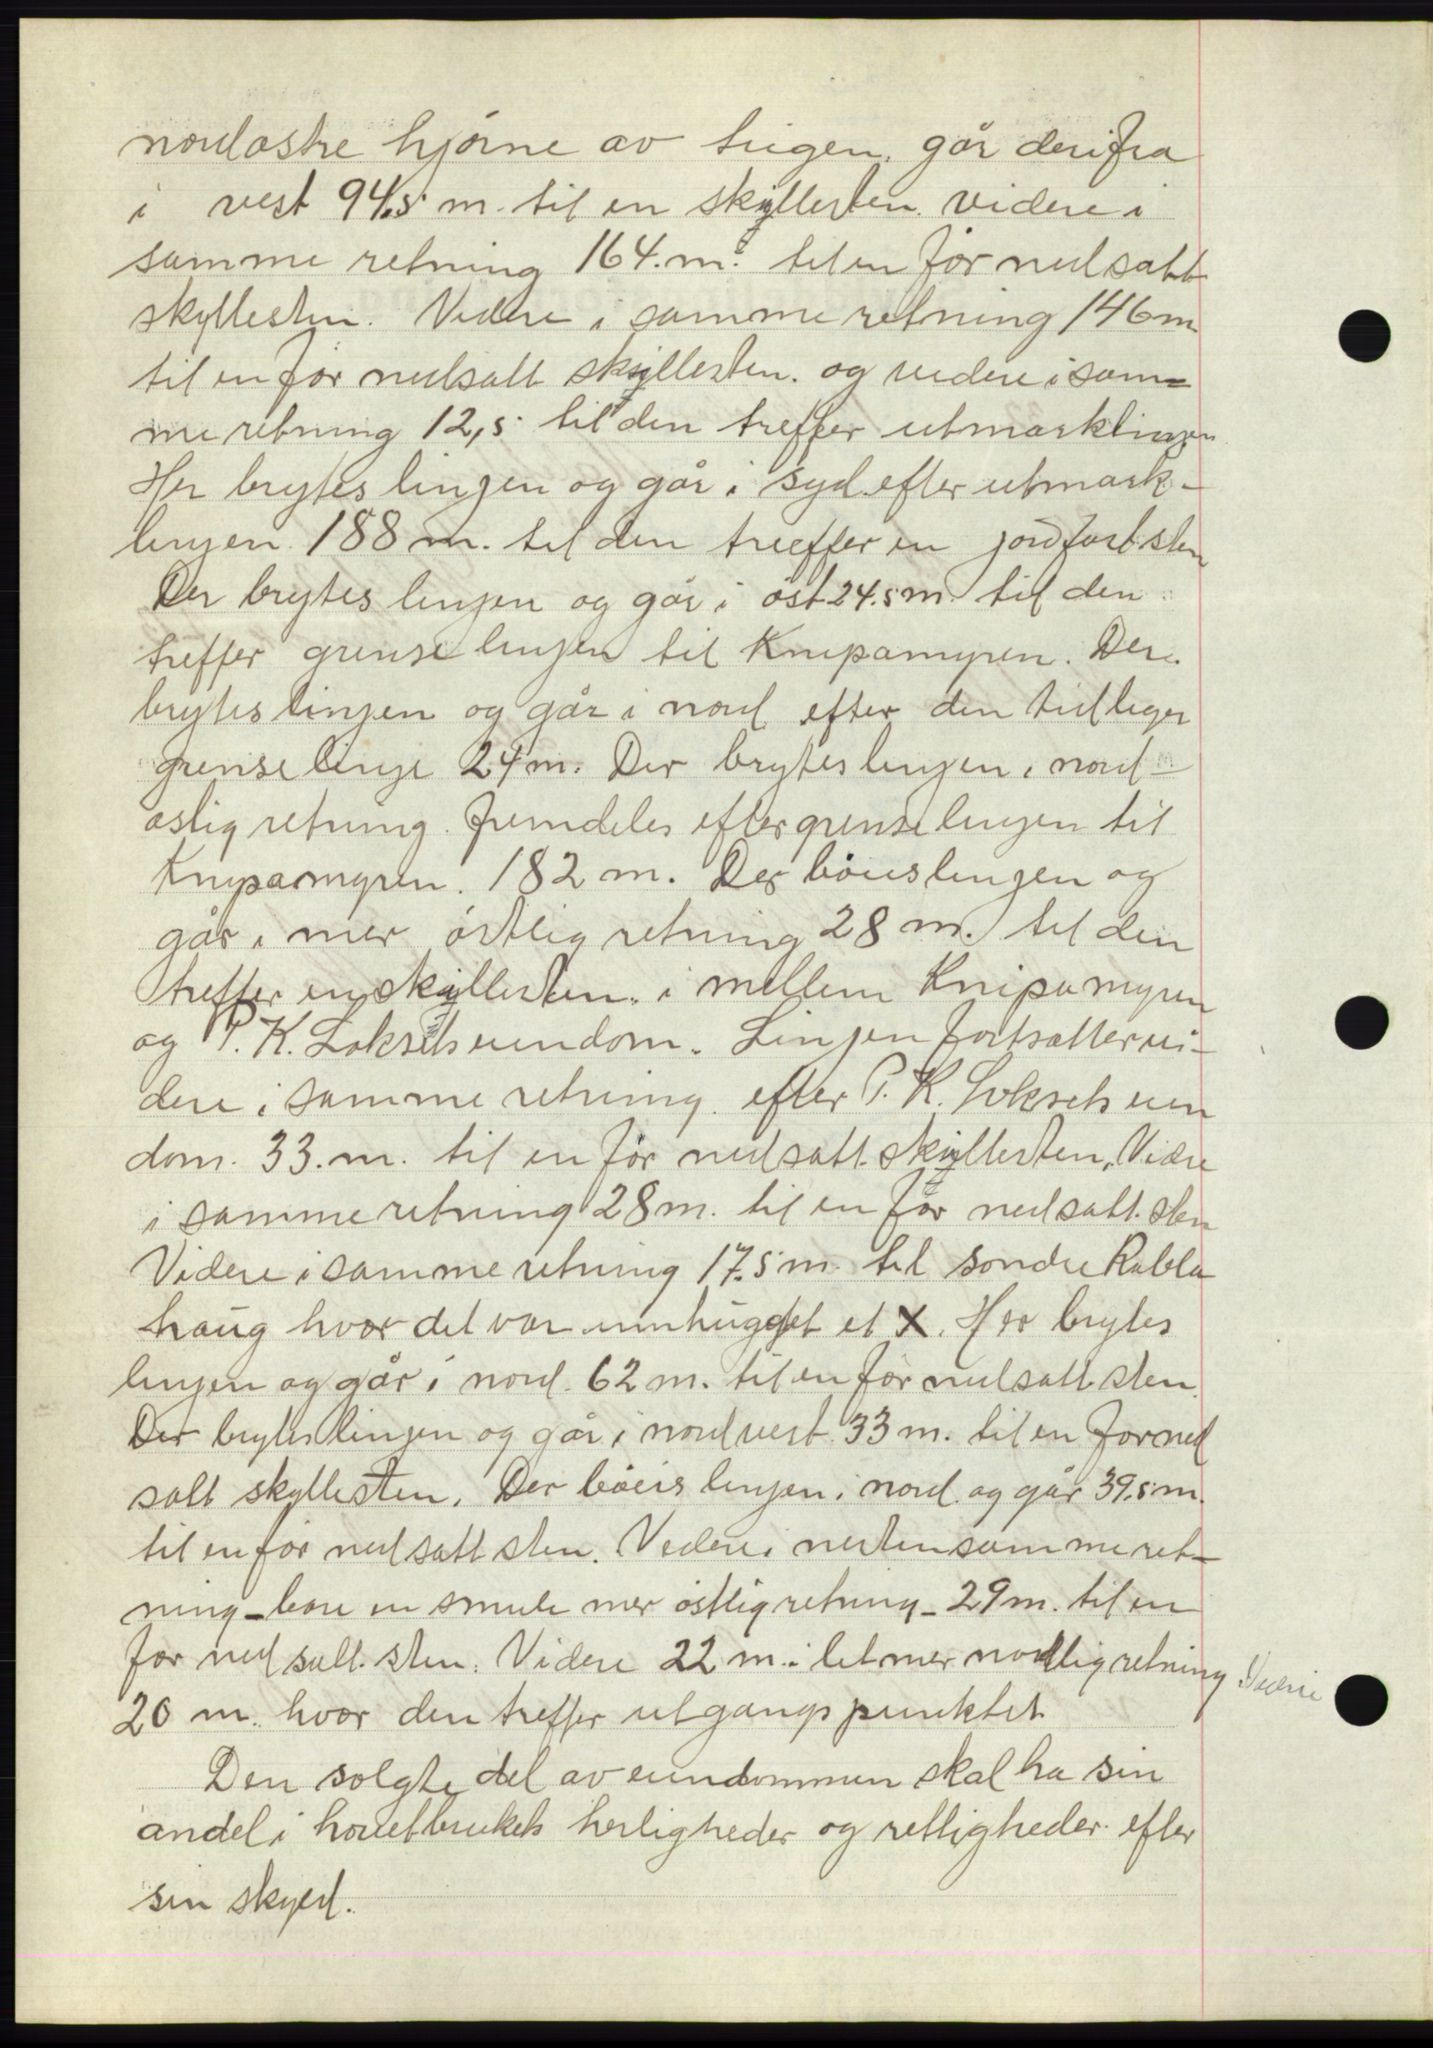 nordøstre hjørne av teigen, går derifra
i vest 94,5 m. til en skyllesten. videre i
samme retning 164. m. til en før nedsatt
skyllesten. Videre i samme retning 146 m
til en før nedsatt skyllesten. og videre i sam=
me retning 12,5 til den treffer utmarklinjen.
Her brytes linjen og går i syd. efter utmark-
linjen. 188 m. til den treeffer en jordfast sten
Der brytes linjen og går i øst 24.5 m. til den
treffer grenselinjen til Knipamyren. Der.
brytes linjen og går i nord efter den tidliger
grenselinje 24 m. Der brytes linjen i nord-
østlig retning. fremdeles efter grenselinjen til
Knipamyren. 182 m. Der bøies linjen og
går i mer østlig retning 28 m. til den
treffer en skyllesten. i mellem Knipamyren
og P. K. Løksets eiendom. Linjen fortsatter vi-
dere i samme retning. efter P. K. Løksets eien
dom. 33. m. til en før nedsatt. skyllesten. Vidre
i samme retning 28 m. til en før nedsatt. sten
Videre i samme retning 17.5 m. til søndre Rabba
haug hvor det var innhugget et X. Her brytes
linjen og går i nord. 62 m. til en før nedsatt sten.
Der brytes linjen og går i nordvest 33 m. til en før ned
satt skyllesten. Der bøies linjen i nord. og går 39.5 m.
til en før nedsatt sten. Videre i nesten samme ret-
ning - bare en smule mer østlig retning - 29 m. til en
før nedsatt. sten. Videre 22 m. i let mer nordlig retning Videre
20 m. hvor den treffer utgangspunktet
Den solgte del av eiendommen skal ha sin
andel i hovetbrukets herligheder og rettigheder efter
sin skyld.